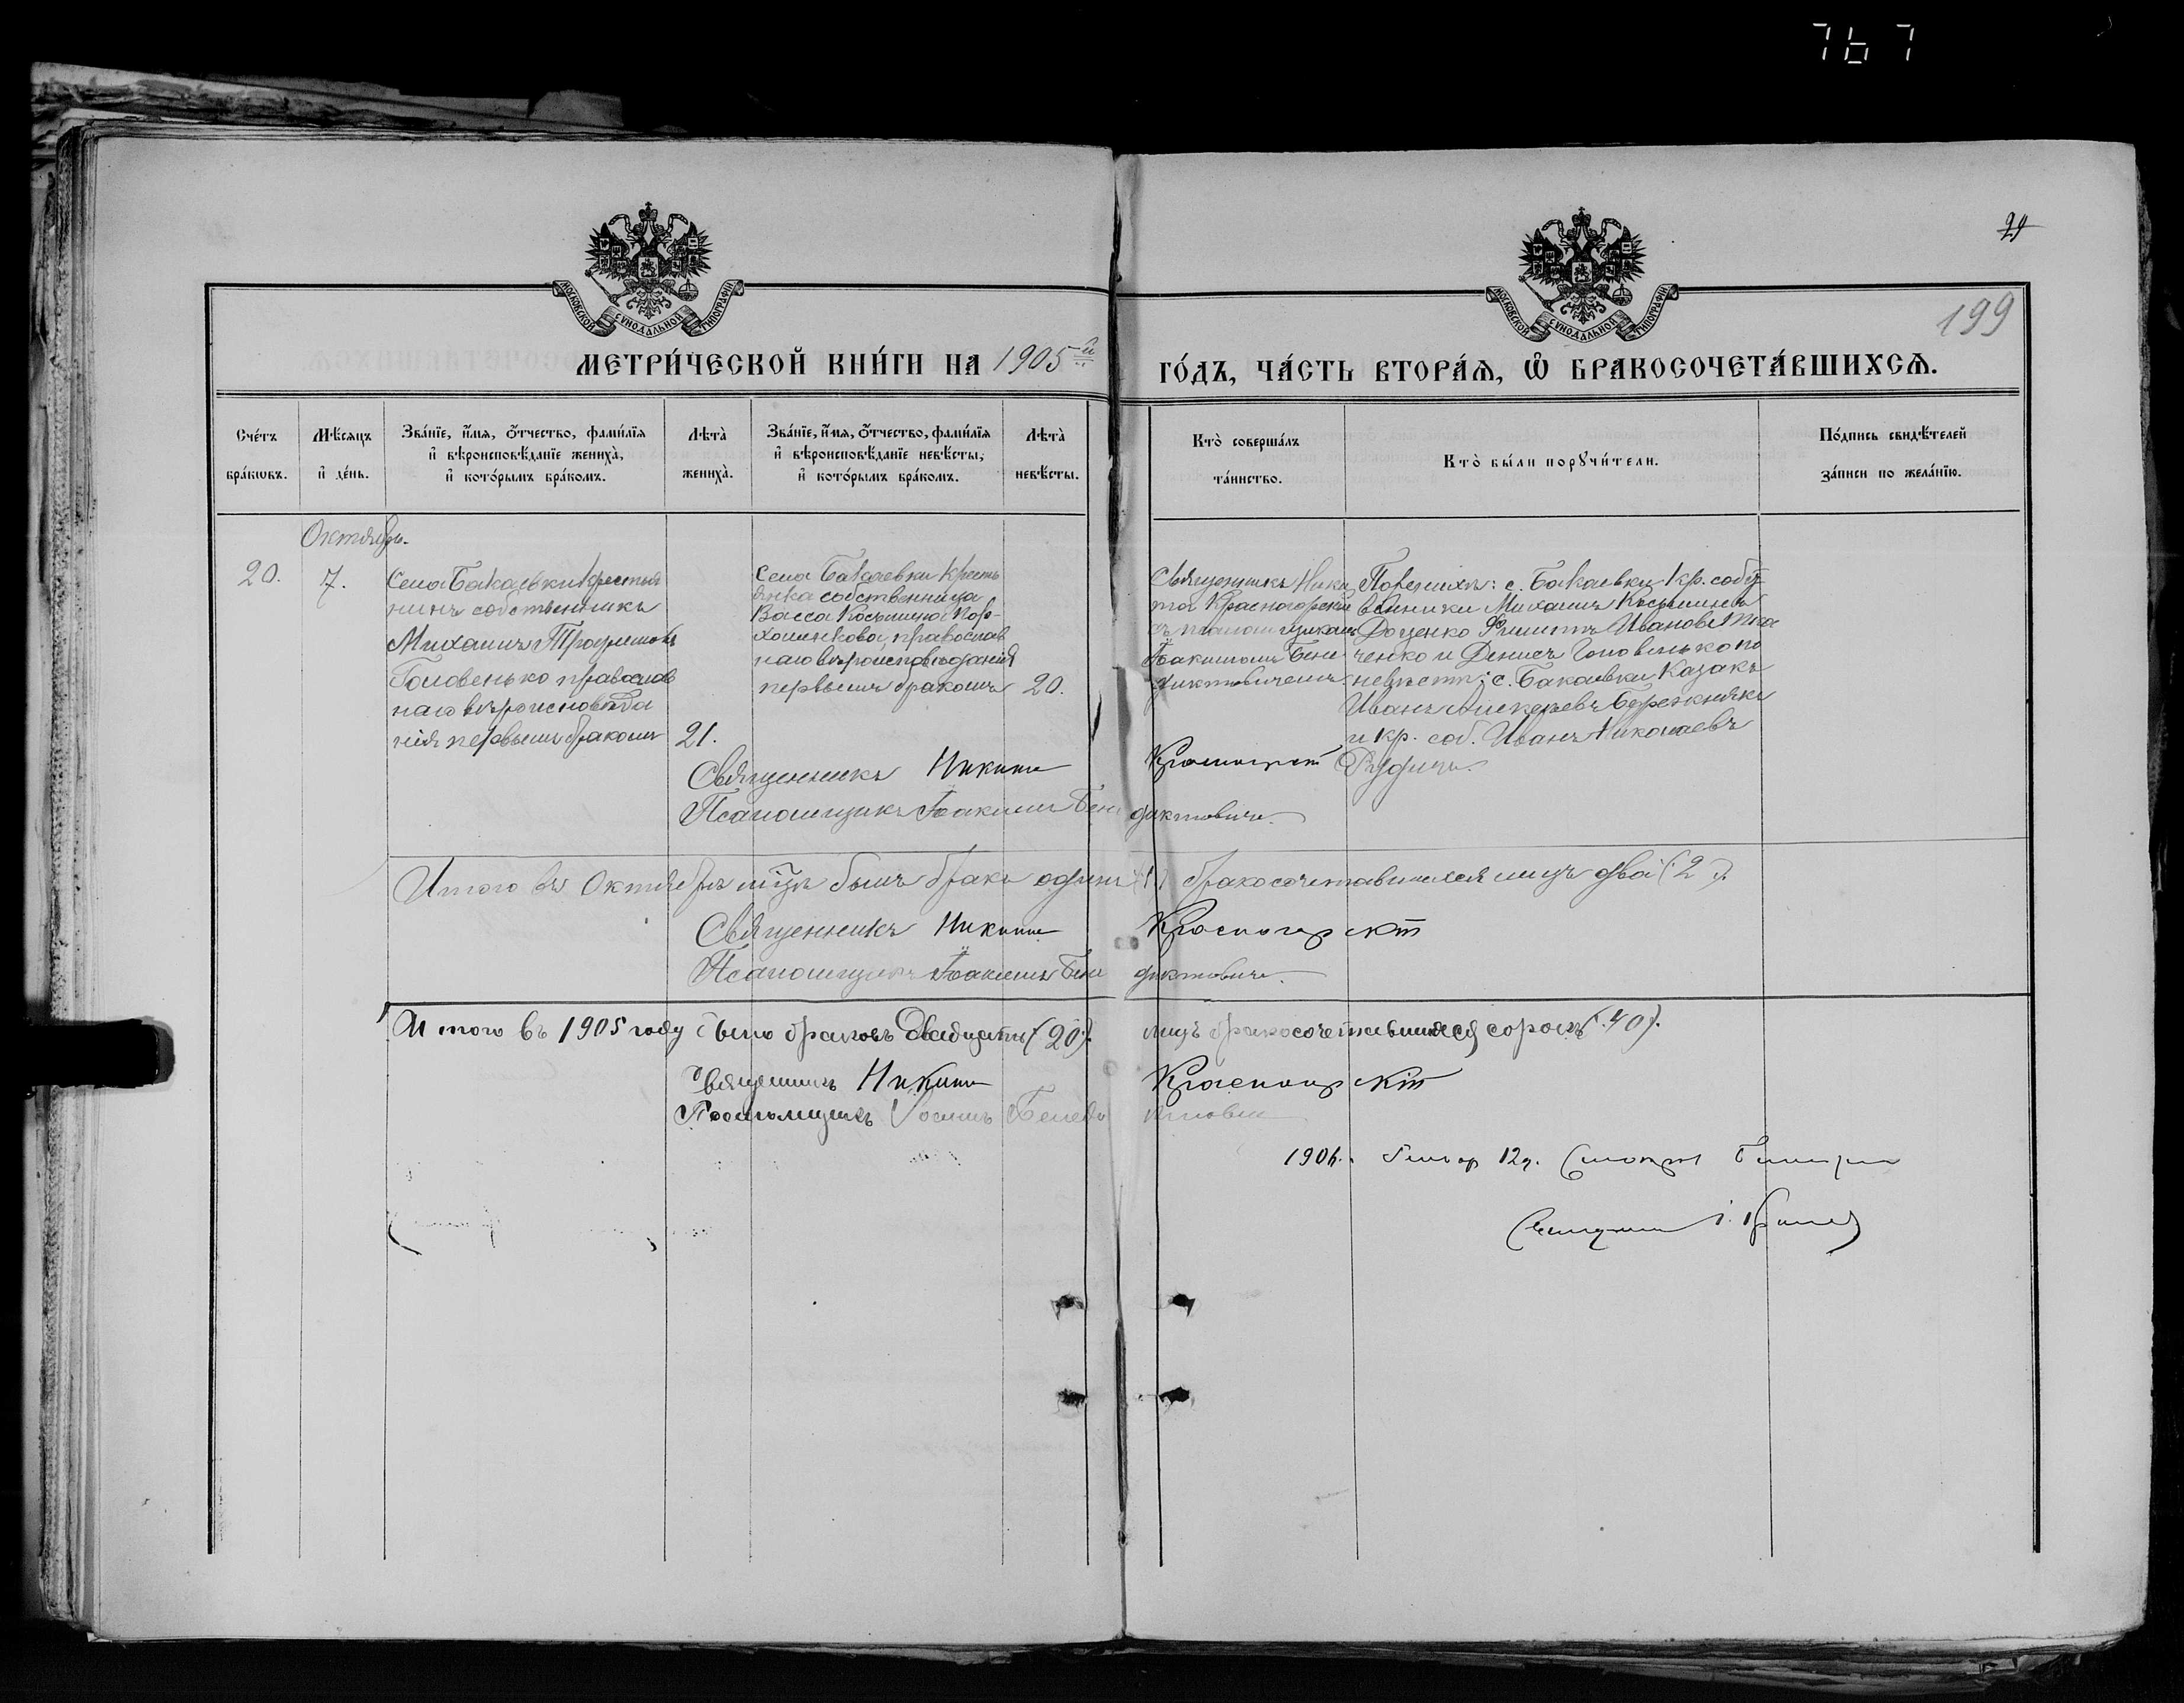 767
29
199
МОСКОВСКОЙ СУНОДАЛЬНОЙ ТИПОГРАФІИ
МОСКОВСКОЙ СУНОДАЛЬНОЙ ТИПОГРАФІИ
МЕТРИ́ЧЕСКОЙ КНИ́ГИ НА 1905й
ГО́ДЪ, ЧА́СТЬ ВТОРА́Ѧ, Ѽ БРАКОСОЧЕТА́ВШИХСѦ.
Сче́тъ бра́кѡвъ.
Мѣ́сяцъ и҆ де́нь.
Зва́нїе, и҆́мя, ѻ҆́тчество, фами́лїя и҆ вѣроисповѣ́данїе жениха̀, и҆ кото́рымъ бра́комъ.
Лѣта̀ жениха̀.
Зва́нїе, и҆́мя, ѻ҆́тчество, фами́лїя и҆ вѣроисповѣ́данїе невѣ́сты, и҆ кото́рымъ бра́комъ.
Лѣта̀ невѣ́сты.
Кто̀ соверша́лъ та́инство.
Кто̀ бы́ли порꙋчи́тели.
По́дпись свидѣ́телей за́писи по жела́нїю.
Октябрь.
20.
7.
Села Бакаевки крестья
нинъ собственникъ
Михаилъ Трофимовъ
Головенько православ
наго вѣроисповѣда
нія первымъ бракомъ
21.
Села Бакаевки кресть
янка собственница
Васса Косьмина Пор-
хоменкова, православ
наго вѣроисповѣданія
первымъ бракомъ
20.
Священникъ Ники
та Красногорскій
съ псаломщикомъ
Іоакимомъ Бене
диктовичемъ
По женихѣ: с. Бакаевки кр. собст
венники Михаилъ Косьминъ
Доценко Филиппъ Ивановъ Тка
ченко и Денисъ Головенько по
невѣстѣ: с. Бакаевки Казакъ
Иванъ Алексѣевъ Бережнякъ
и кр. соб. Иванъ Николаевъ
Рудичъ.
Священникъ Никита Красногорскій
Псаломщикъ Іоакимъ Бенедиктовичъ.
Итого въ Октябрѣ мцѣ былъ бракъ одинъ (1) бракосочетавшихся лицъ два (2).
Священникъ Никита Красногорскій
Псаломщикъ Іоакимъ Бенедиктовичъ.
Итого въ 1905 году было браковъ двадцать (20). лицъ бракосочетавшихся сорокъ (40).
Священникъ Никита Красногорскій
Псаломщикъ Іоакимъ Бенедиктовичъ
12